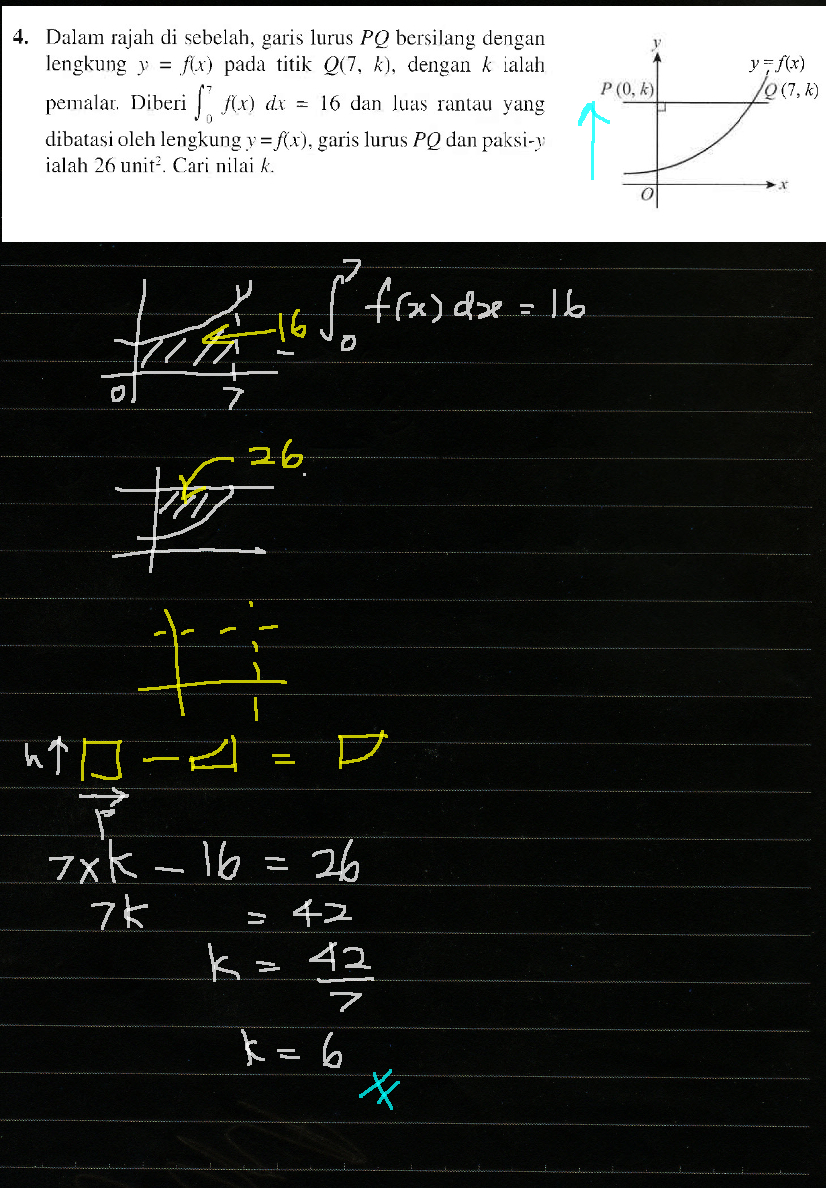 4. Dalam rajah di sebelah, garis lurus PQ bersilang dengan
lengkung y = f(x) pada titik Q(7, k), dengan k ialah
pemalar. Diberi ∫₀⁷ f(x) dx = 16 dan luas rantau yang
dibatasi oleh lengkung y = f(x), garis lurus PQ dan paksi-y
ialah 26 unit². Cari nilai k.
y
y = f(x)
P (0, k)
Q (7, k)
O
x
16
∫₀⁷ f(x) dx = 16
0
7
26
h↑ □ − = 
7 x k − 16 = 26
7k = 42
k = 42/7
k = 6